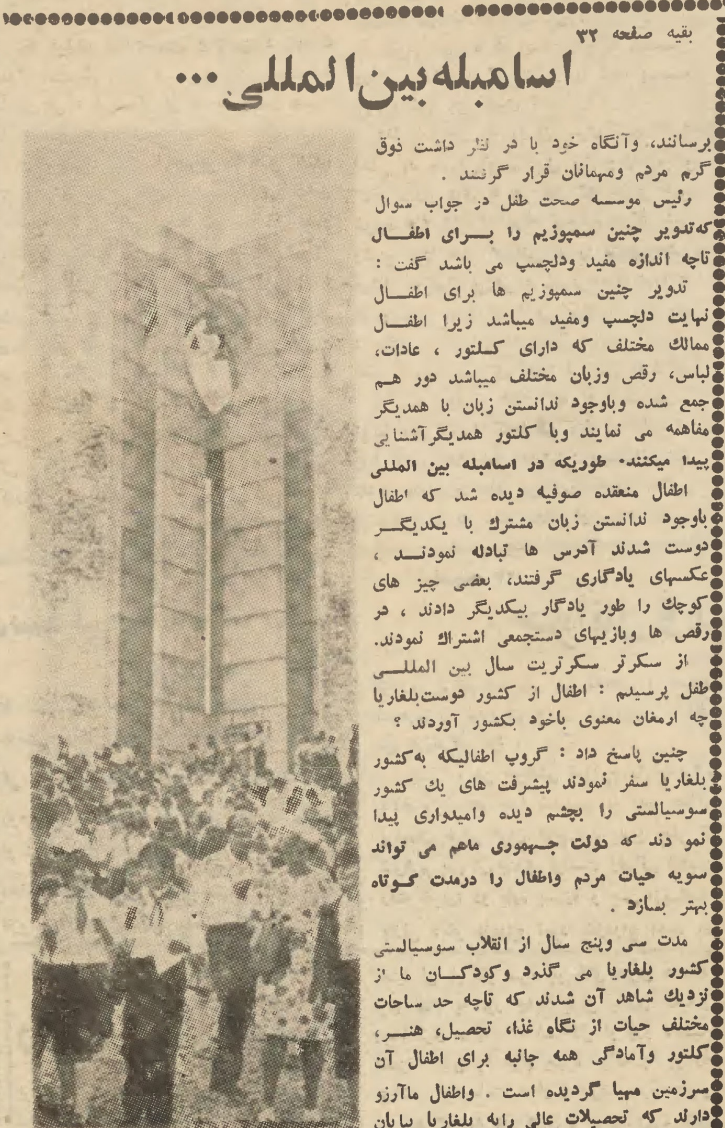 بقیه صفحه ۳۲
اسامبله بین المللی ...
برسانند، وآنگاه خود با در نظر داشت ذوق
گرم مردم ومهمانان قرار گرفتند .
رئیس موسسه صحت طفل در جواب سوال
که تدویر چنین سمپوزیم را بـــرای اطفـــال
تاچه اندازه مفید ودلچسپ می باشد گفت :
تدویر چنین سمپوزیم ها برای اطفـــال
نهایت دلچسپ ومفید میباشد زیرا اطفـــال
ممالك مختلف که دارای کـلتور ، عادات،
لباس، رقص وزبان مختلف میباشد دور هـم
جمع شده وباوجود ندانستن زبان با همدیگر
مفاهمه می نمایند وبا کلتور همدیگر آشنایی
پیدا میکنند. طوریکه در اسامبله بین المللی
اطفال منعقده صوفیه دیده شد که اطفال
باوجود ندانستن زبان مشترك با یکدیگـــر
دوست شدند آدرس ها تبادله نمودنــد ،
عکسهای یادگاری گرفتند، بعضی چیز های
کوچك را طور یادگار بیکدیگر دادند ، در
رقص ها وبازیهای دستجمعی اشتراك نمودند.
از سکرتر سکرتریت سال بین المللــی
طفل پرسیدم : اطفال از کشور دوست بلغاریا
چه ارمغان معنوی باخود بکشور آوردند ؟
چنین پاسخ داد : گروپ اطفالیکه به کشور
بلغاریا سفر نمودند پیشرفت های یك کشور
سوسیالستی را بچشم دیده وامیدواری پیدا
نمو دند که دولت جــمهوری ماهم می تواند
سویه حیات مردم واطفال را درمدت کــوتاه
بهتر بسازد .
مدت سی وپنج سال از انقلاب سوسیالستی
کشور بلغاریا می گذرد وکودکــان ما از
نزدیك شاهد آن شدند که تاچه حد ساحات
مختلف حیات از نگاه غذا، تحصیل، هنــر،
کلتور وآمادگی همه جانبه برای اطفال آن
سرزمین مهیا گردیده است . واطفال ماآرزو
دارند که تحصیلات عالی رابه بلغاریا بپایان